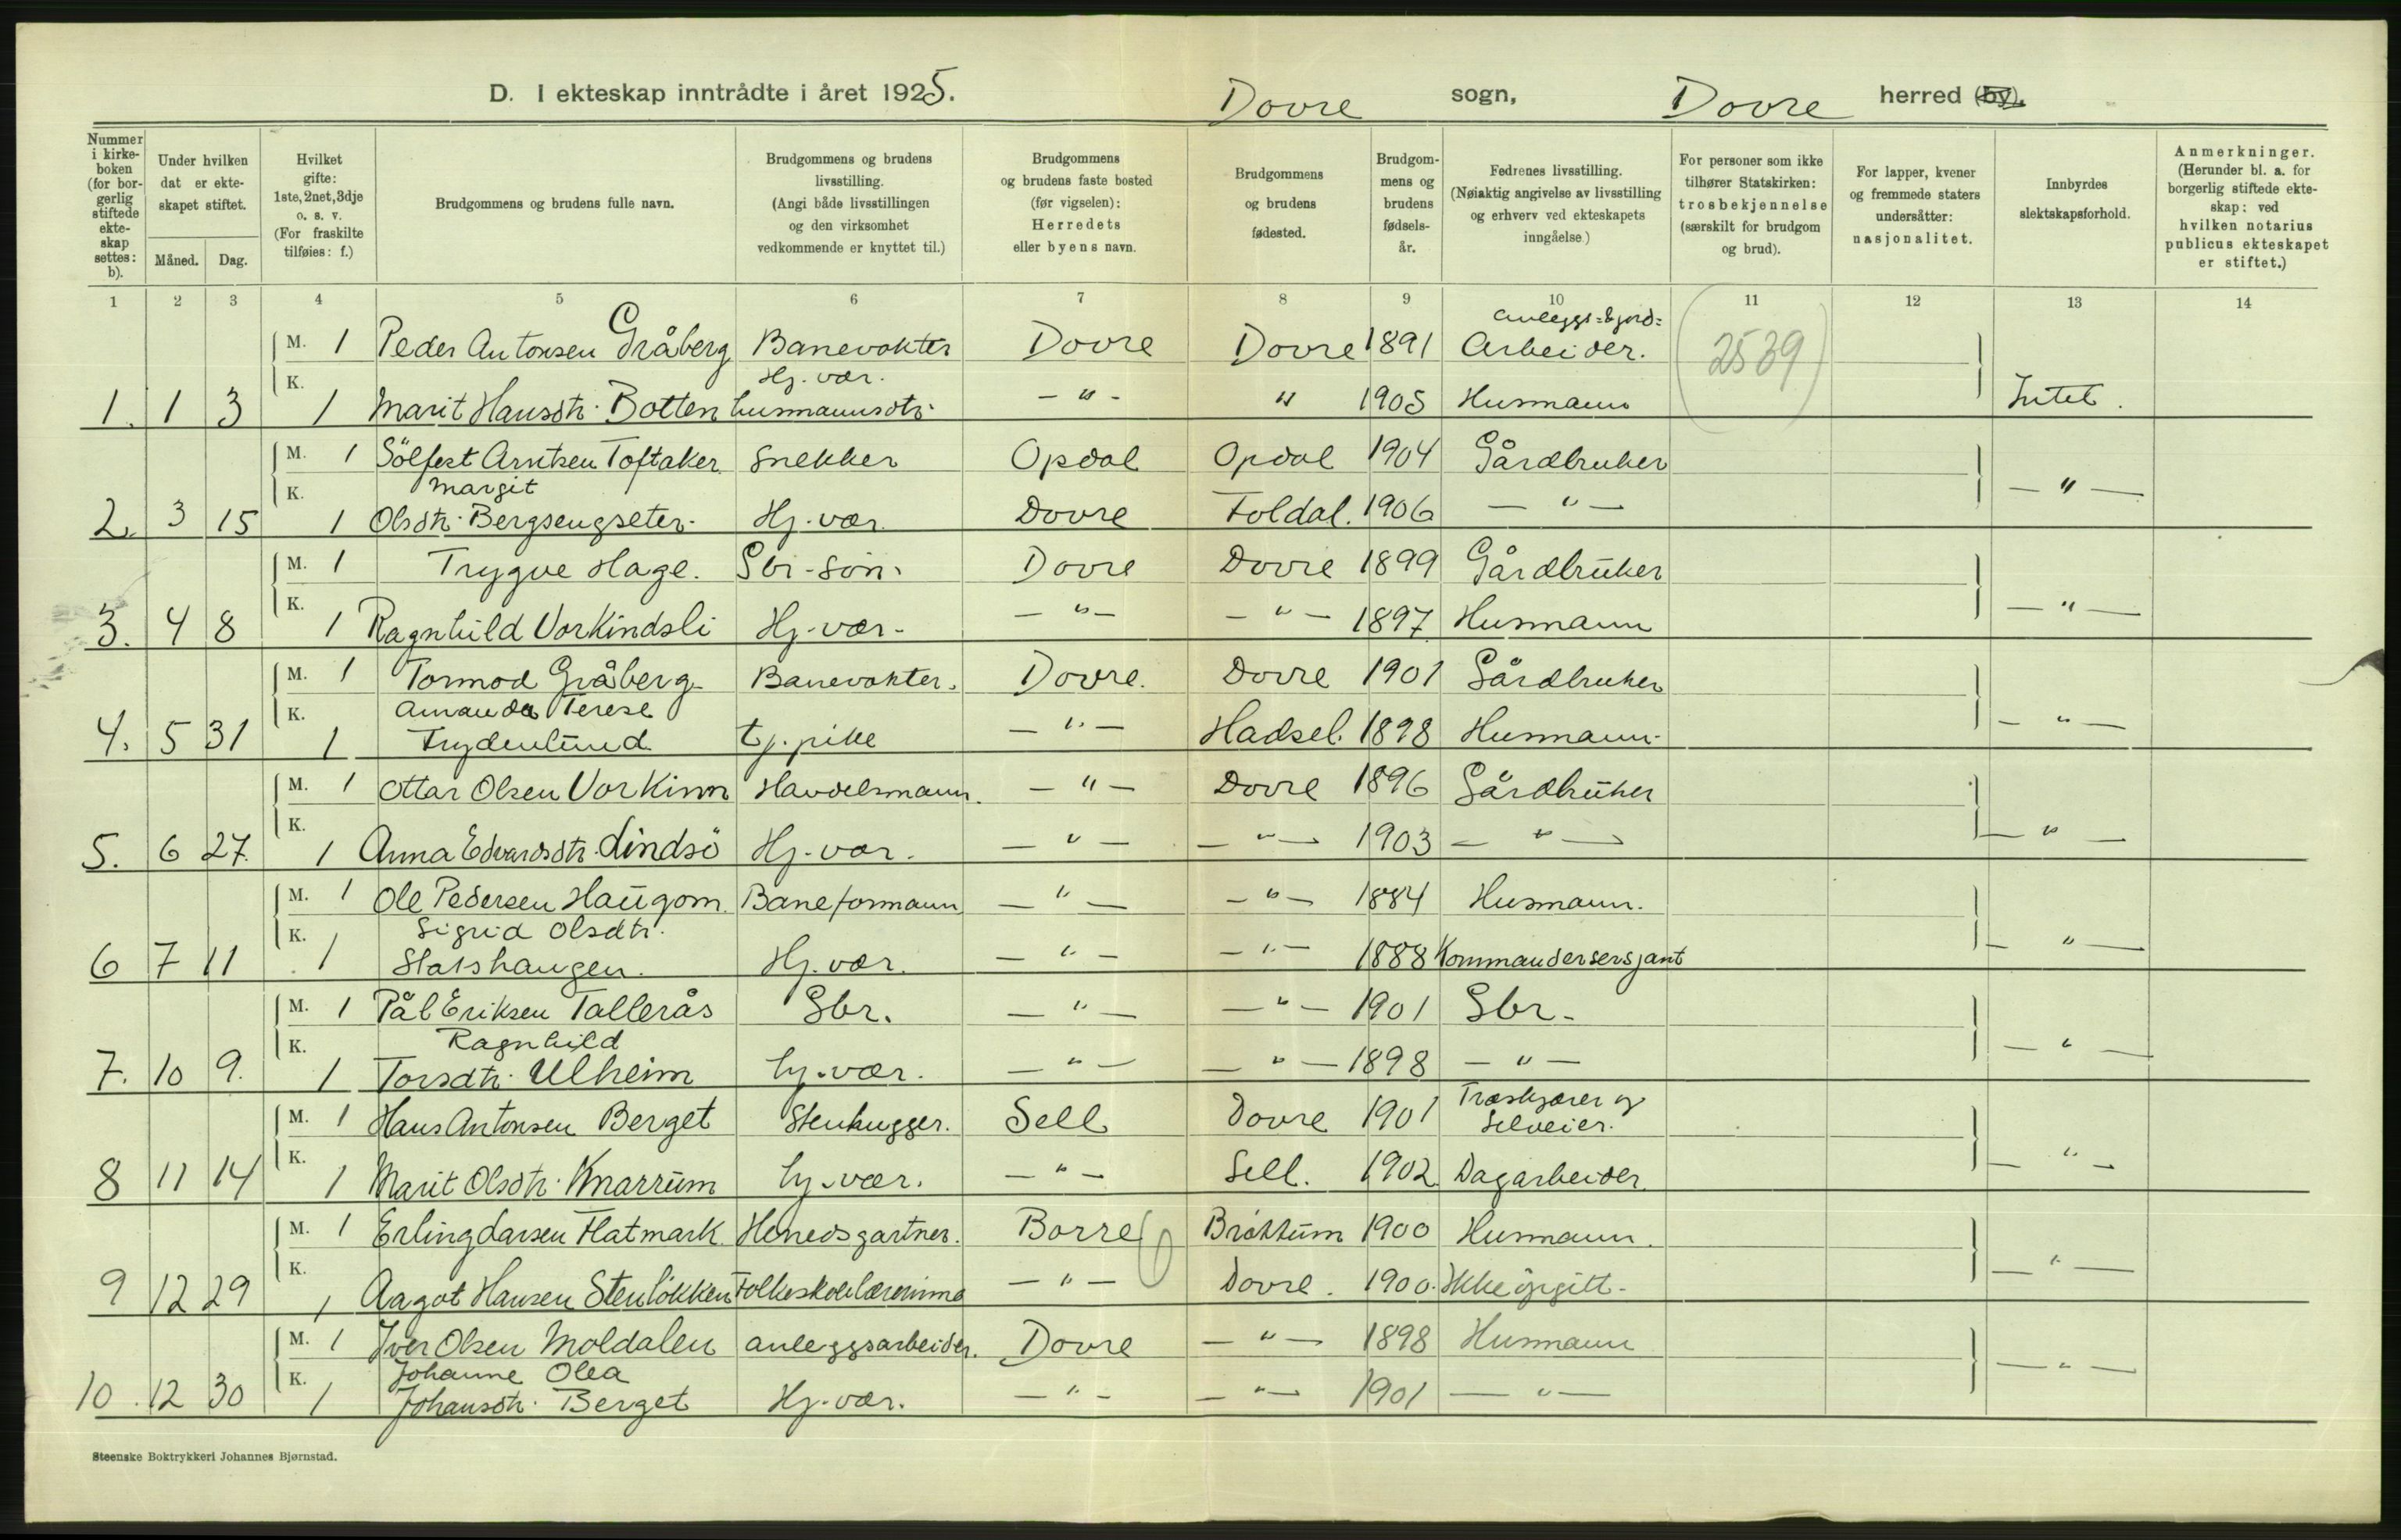 D. I ekteskap inntrådte i året 1925. Dovre sogn, Dovre herred (by).
Nummer i kirkeboken (for borgerlig stiftede ekteskap settes: b).
Under hvilken dat er ekteskapet stiftet.
Måned. Dag.
Hvilket gifte: 1ste, 2net, 3dje o. s. v. (For fraskilte tilføies: f.)
Brudgommens og brudens fulle navn.
Brudgommens og brudens livsstilling. (Angi både livsstillingen og den virksomhet vedkommende er knyttet til.)
Brudgommens og brudens faste bosted (før vigselen): Herredets eller byens navn.
Brudgommens og brudens fødested.
Brudgommens og brudens fødselsår.
Fedrenes livsstilling. (Nøiaktig angivelse av livsstilling og erhverv ved ekteskapets inngåelse)
For personer som ikke tilhører Statskirken: trosbekjennelse (særskilt for brudgom og brud).
For lapper, kvener og fremmede staters undersåtter: nasjonalitet.
Innbyrdes slektskapsforhold.
Anmerkninger. (Herunder bl. a. for borgerlig stiftede ekteskap: ved hvilken notarius publicus ekteskapet er stiftet.)
1 2 3 4 5 6 7 8 9 10 11 12 13 14
M. 1 Peder Antonsen Gråberg Banevokter Dovre Dovre 1891 Anleggs- & jord- Arbeider. (2539)
1. 1 3 K. 1 Marit Hansdtr. Botten Hj. vær. husmannsdtr. - " - " 1905 Husmann Intet.
M. 1 Sölfest Arntsen Toftaker Snekker Opdal Opdal 1904 Gårdbruker
2. 3 15 K. 1 Margit Olsdtr. Bergsengseter. Hj. vær. Dovre Foldal. 1906 - " - - " -
M. 1 Trygve Hage. Gbr-sön. Dovre Dovre 1899 Gårdbruker
3. 4 8 K. 1 Ragnhild Vorkindsli Hj. vær. - " - - " - 1897 Husmann - " -
M. 1 Tormod Gråberg Banevokter. Dovre. Dovre 1901 Gårdbruker
4. 5 31 K. 1 Amanda Terese Frydenlund tj. pike - " - Hadsel. 1898 Husmann. - " -
M. 1 Ottar Olsen Vorkinn Handelsmann. - " - Dovre 1896 Gårdbruker
5. 6 27. K. 1 Anna Edvardsdtr. Lindsö Hj. vær. - " - - " - 1903 - " - - " -
M. 1 Ole Pedersen Haugom. Baneformann - " - - " - 1884 Husmann.
6 7 11 K. 1 Sigrid Olsdtr. Slatshaugen. Hj. vær. - " - - " - 1888 Kommandersersjant - " -
M. 1 Pål Eriksen Tallerås Gbr. - " - - " - 1901 Gbr.
7. 10 9. K. 1 Ragnhild Torsdtr. Ulheim hj. vær. - " - - " - 1898 - " - - " -
M. 1 Hans Antonsen Berget Stenhugger. Sell Dovre 1901 Træskjærer og Selveier.
8 11 14 K. 1 Marit Olsdtr. Knarrum hj. vær. - " - Sell. 1902 Dagarbeider. - " -
M. 1 Erling Larsen Flatmark Herredsgartner. Borre Bröttum 1900 Husmann.
9 12 29 K. 1 Aagot Hansen Stenlökken Folkeskolelærerinne - " - Dovre. 1900. Ikke opgitt. - " -
M. 1 Iver Olsen Moldalen anleggsarbeider. Dovre - " - 1898 Husmann
10. 12 30 K. 1 Johanne Olea Johansdtr. Berget Hj. vær. - " - - " - 1901 - " - - " -
Steenske Boktrykkeri Johannes Bjørnstad.